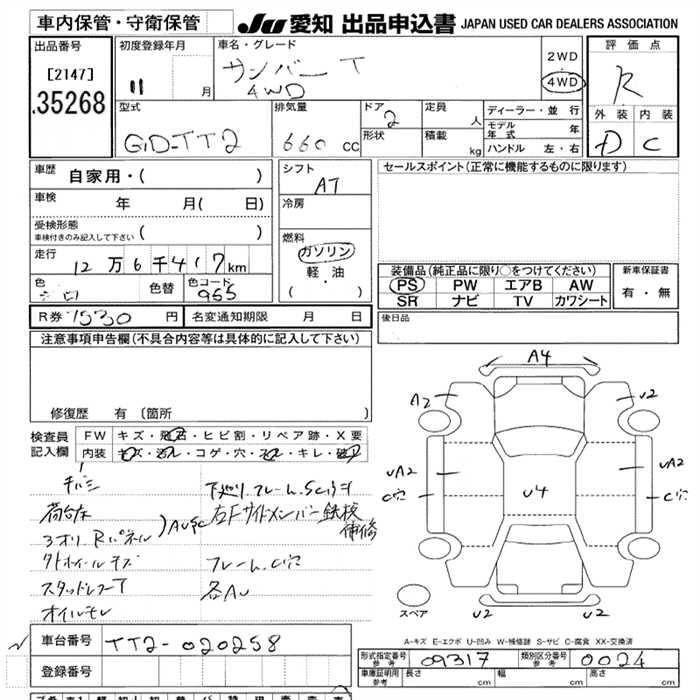 車内保管・守衛保管 JU 愛知 出品申込書 JAPAN USED CAR DEALERS ASSOCIATION
出品番号 初度登録年月 車名・グレード 評価点
[2147] 11 月 サンバー T 2WD R
.35268 4WD 4WD
型式 排気量 ドア 定員 ディーラー・並行 外装 内装
GD-TT2 660 cc 2 人 モデル年式 年 D C
形状 積載 kg ハンドル 左・右
車歴 自家用・( ) シフト AT セールスポイント(正常に機能するものに限ります)
車検 年 月( 日) 冷房
受検形態 車検付きのみ記入して下さい ( )
燃料 ガソリン
軽・油
( )
走行 12万6千417km
色 シロ 色替 色コード 955
装備品(純正品に限り○をつけてください) 新車保証書
PS PW エアB AW 有・無
SR ナビ TV カワシート
R券 7530 円 名変通知期限 月 日 後日品
注意事項申告欄(不具合内容等は具体的に記入して下さい)
修復歴 有 (箇所 )
検査員記入欄 FW キズ・飛石・ヒビ割・リペア跡・X要
内装 キズ・汚レ・コゲ・穴・スレ・キレ・破レ
下廻り フレーム.SCサキ
荷台床 左Fサイドメンバー鉄板補修
3オリ Rパネル )AUSC
フレーム.C穴
スタッドレスT 各AU
オイルモレ
A4
A2 U2
UA2 UA2
C穴 U4 C穴
スペア U2 U2
A-キズ E-エクボ U-凹み W-補修跡 S-サビ C-腐食 XX-交換済
車台番号 TT2-020258
登録番号
形式指定番号 参考 09317 類別区分番号 参考 0024
車庫証明用 参考 長さ cm 幅 cm 高さ cm